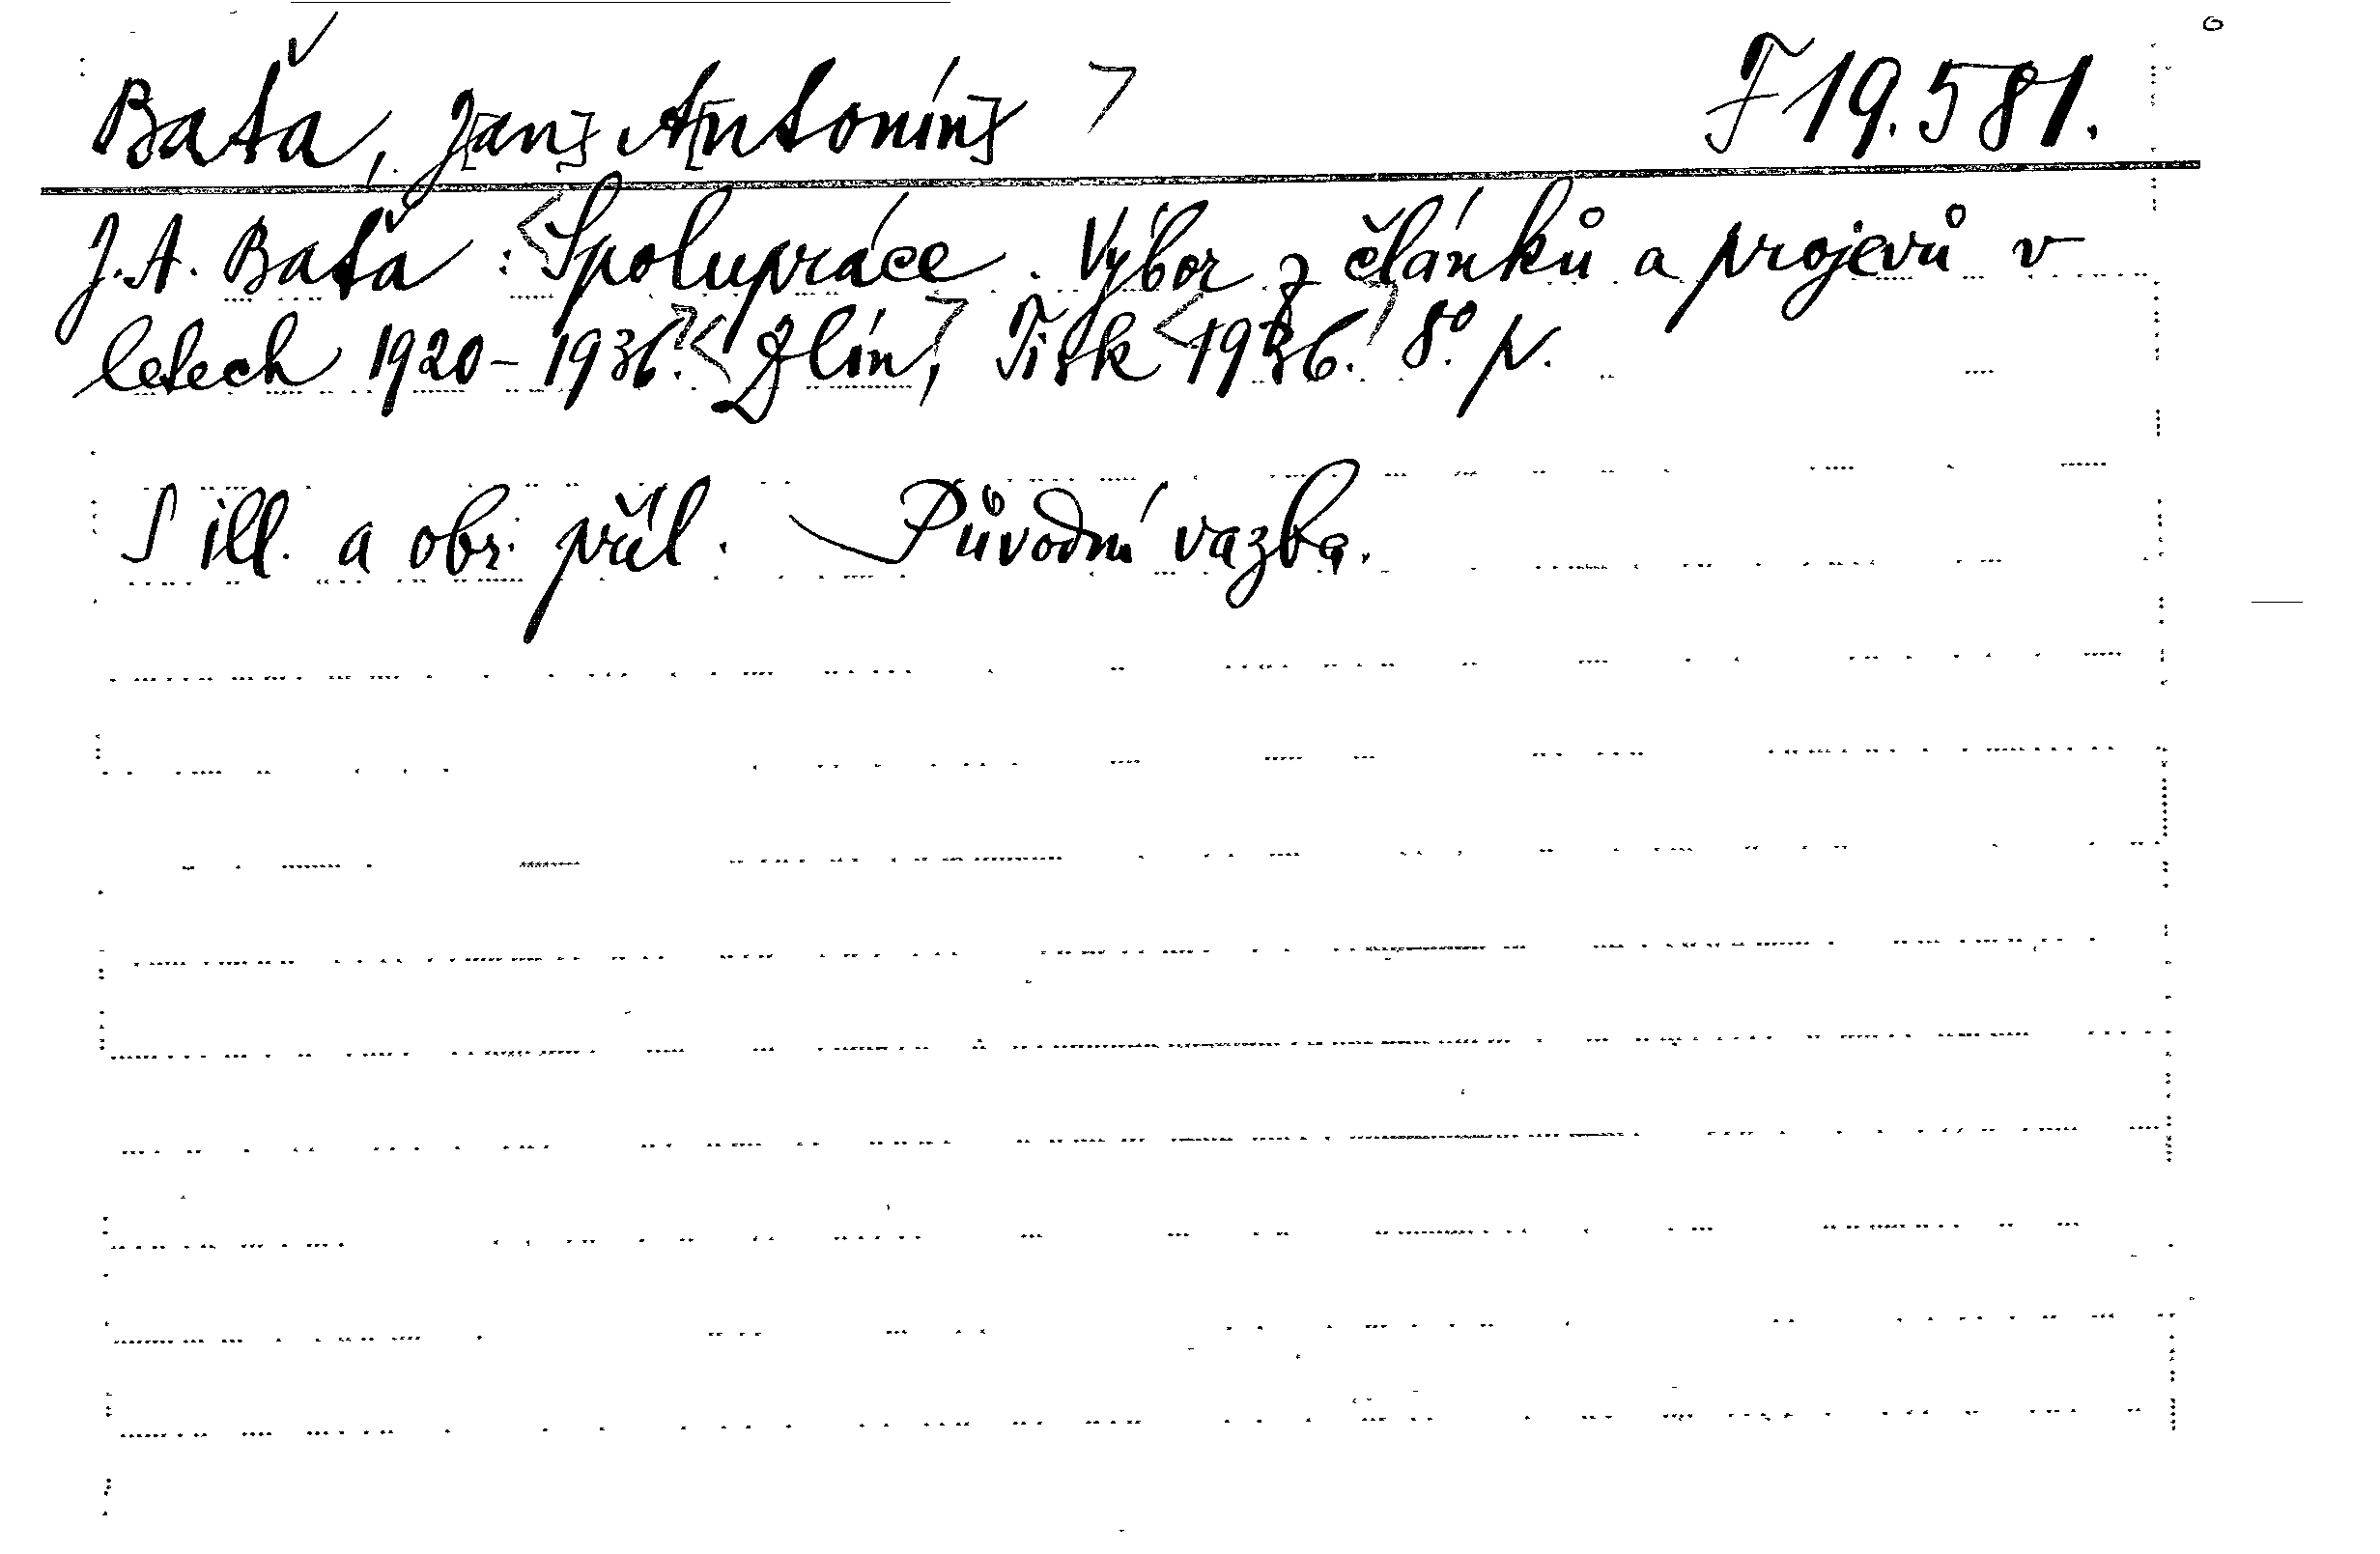 Baťa, J[an] A[ntonín] F 19.581.
J. A. Baťa : Spolupráce. Výbor z článků a projevů v
letech 1920-1936. Zlín, Tisk 1936. 8°. p.
S ill. a obr. příl. Původní vazba.